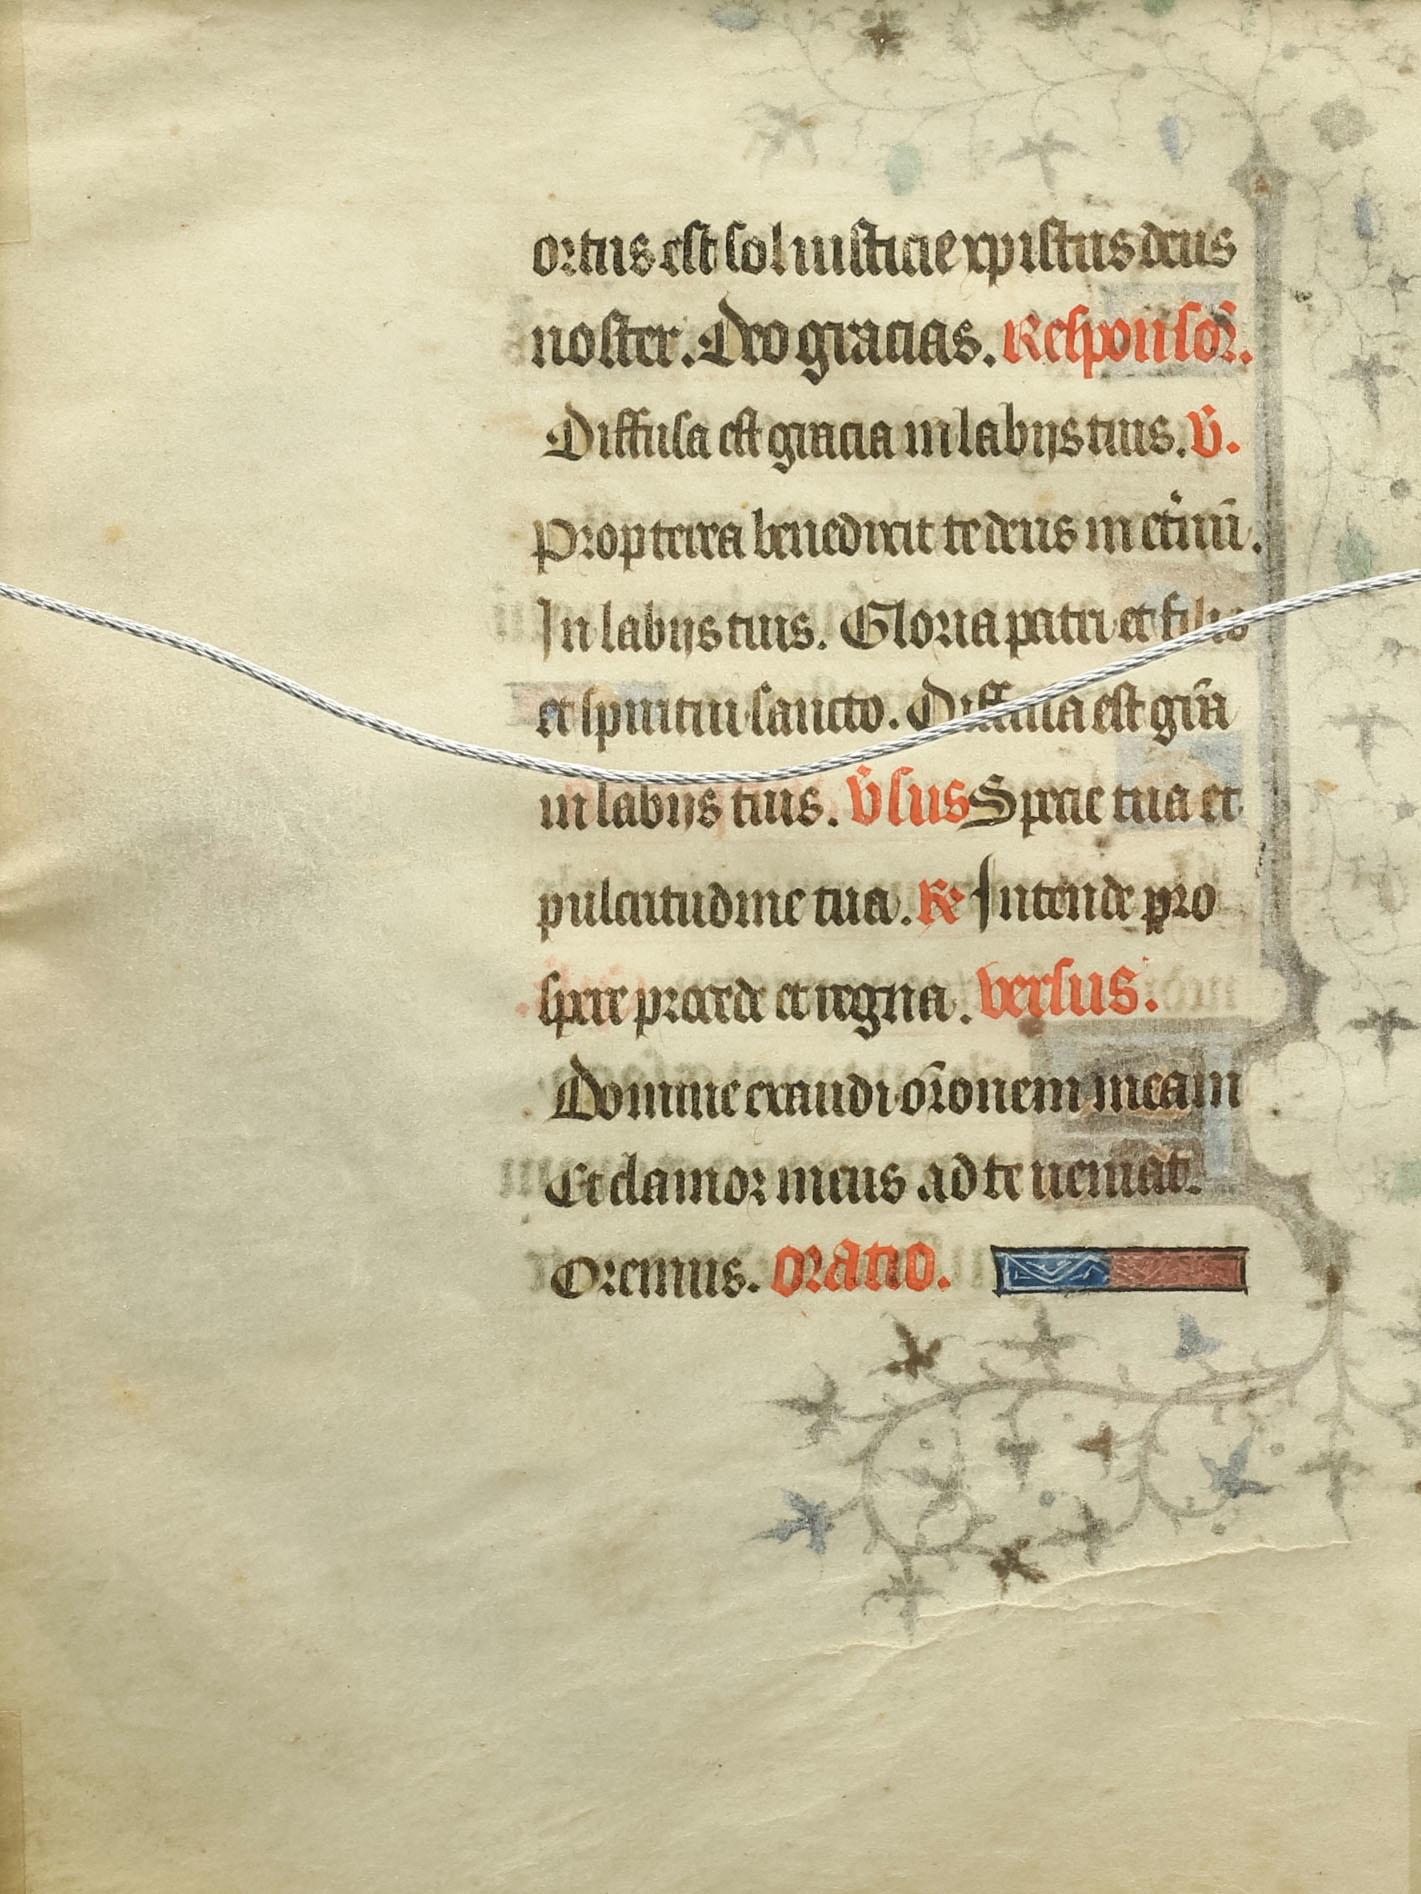 ortus est sol iusticie xpistus deus
noster. Deo gracias. Responsor̄.
Diffusa est gracia in labijs tuis. V̄.
Propterea benedixit te deus in et̄nū.
In labijs tuis. Gloria patri et filio
et spiritui sancto. Diffusa est gr̄a
in labijs tuis. V̄sus Specie tua et
pulcritudine tua. R̷ Intende pro
spere procede et regna. versus.
Domine exaudi or̄onem meam
Et clamor meus ad te ueniat.
Oremus. oratio.